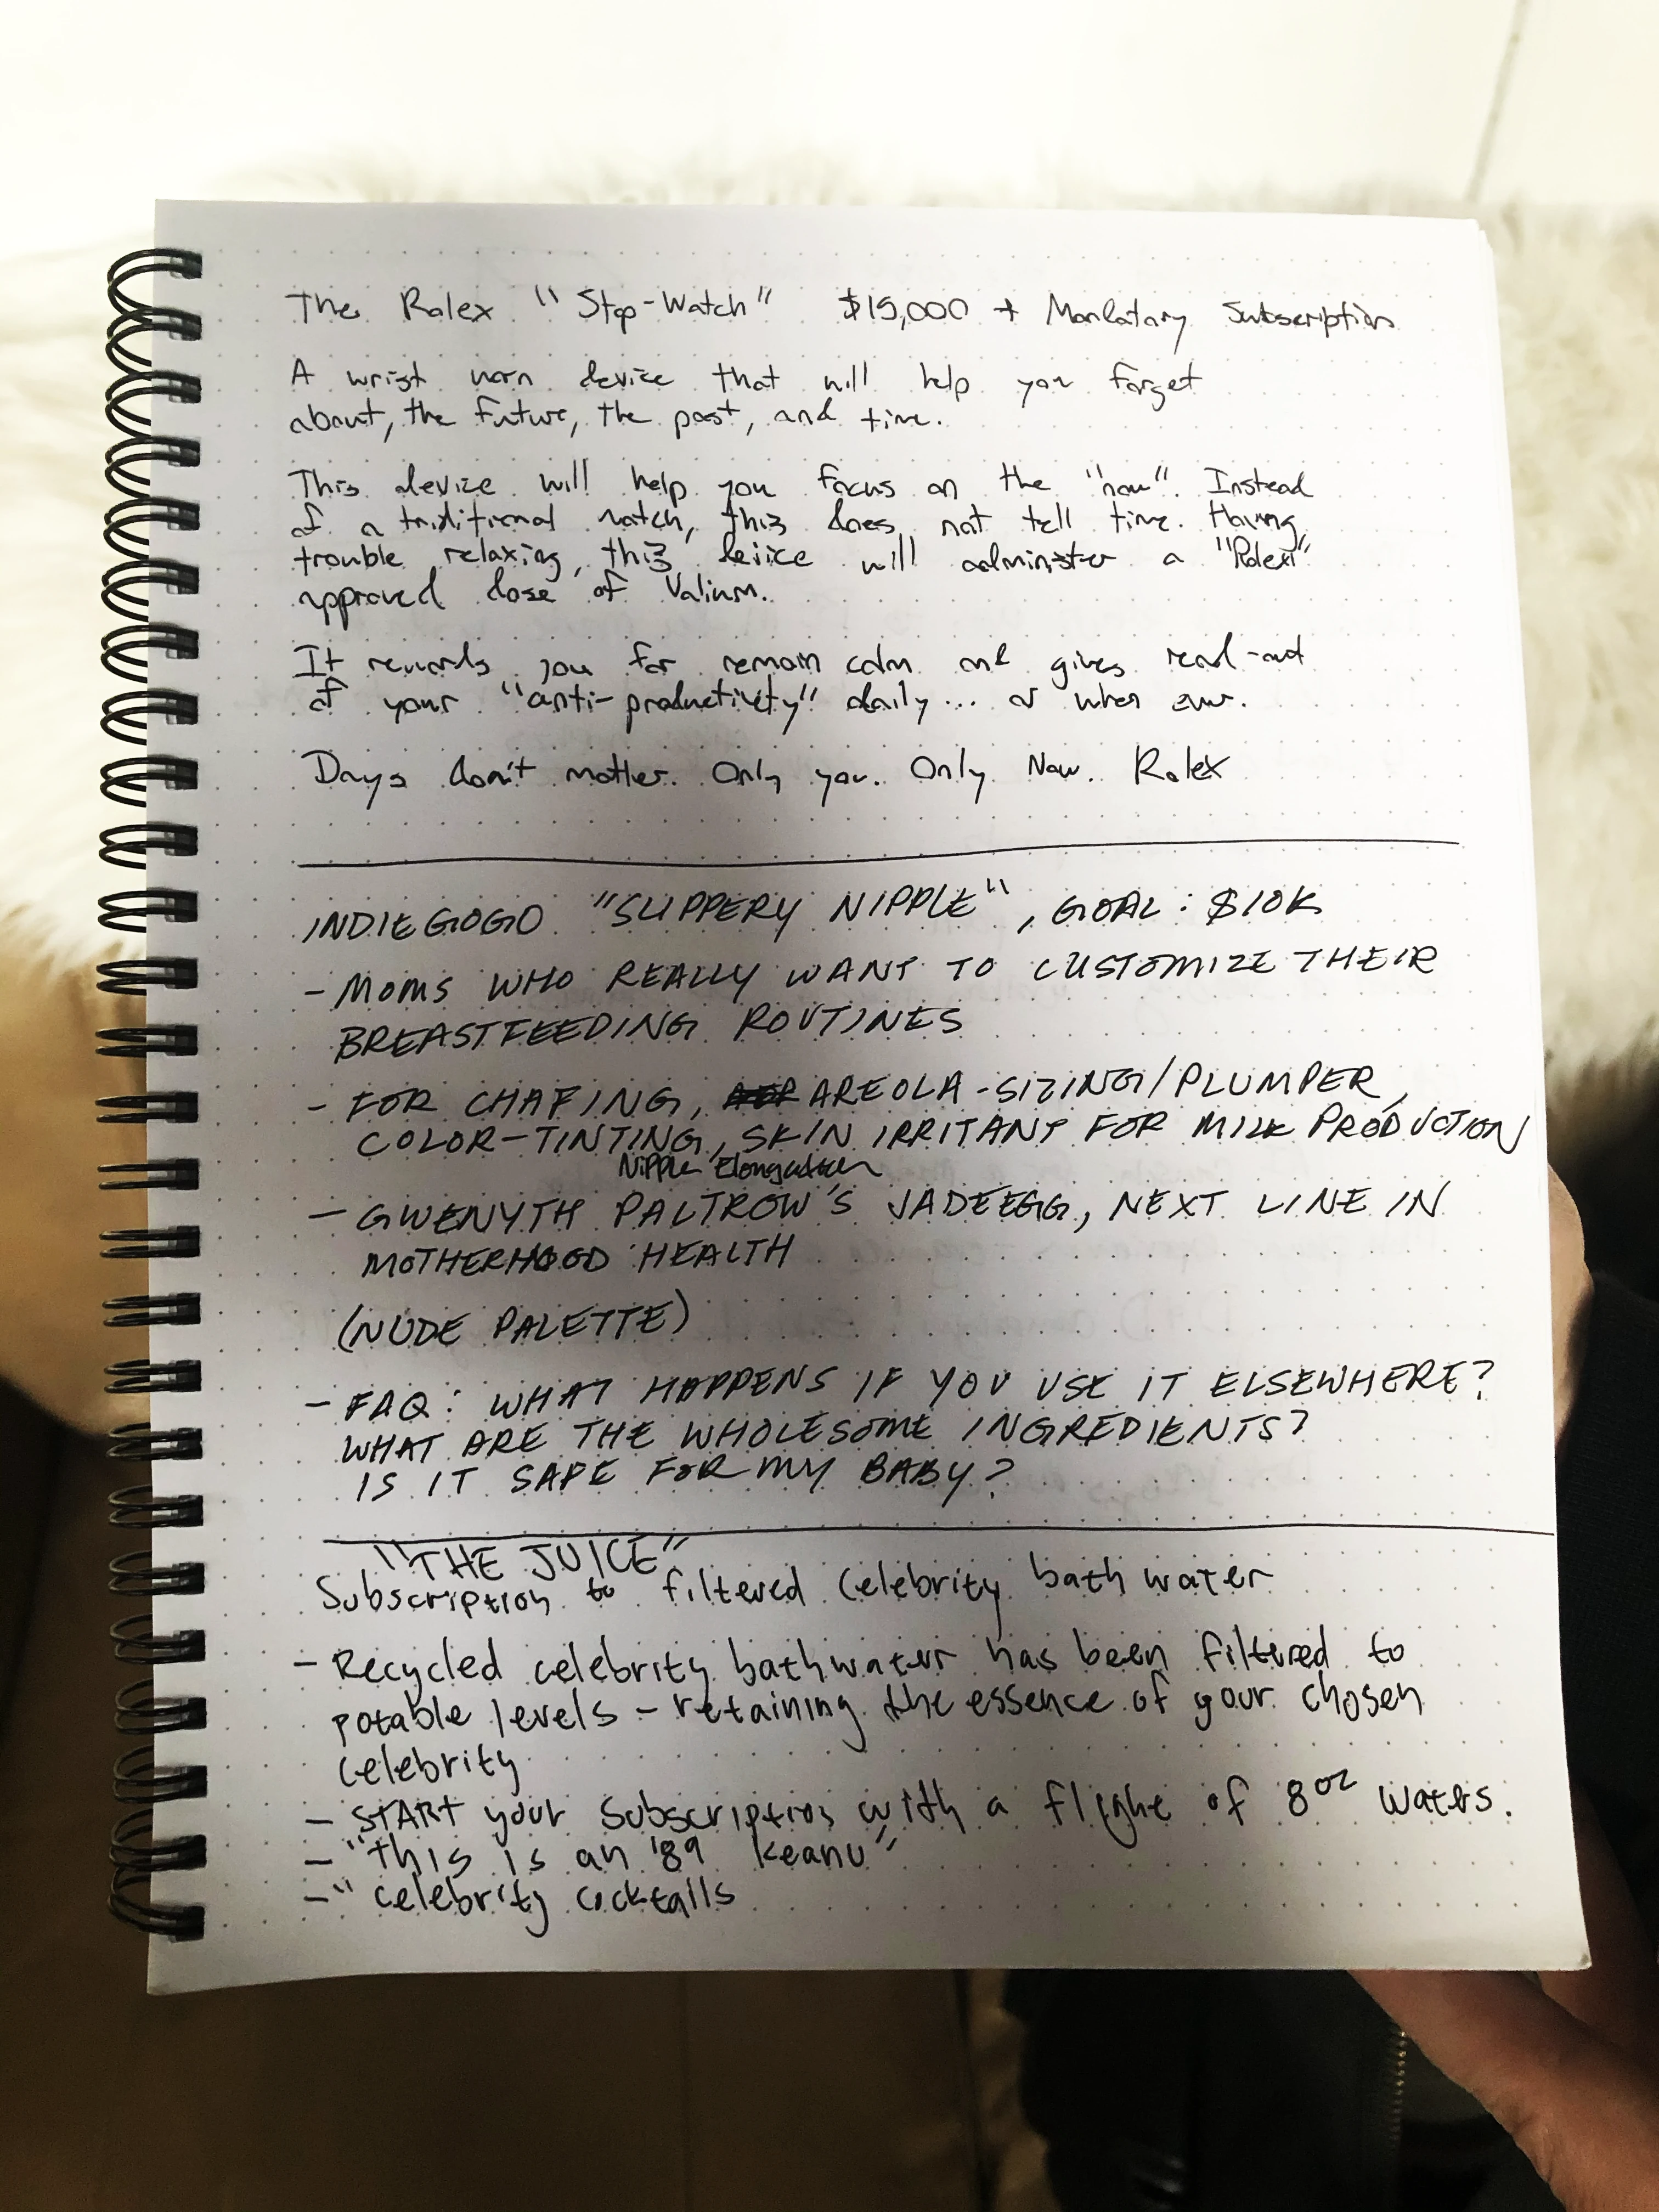 The Rolex "Stop-Watch" $15,000 + Mandatory Subscription
A wrist worn device that will help you forget
about, the future, the past, and time.
This device will help you focus on the "now". Instead
of a traditional watch, this does not tell time. Having
trouble relaxing, this device will administer a "Rolex"
approved dose of Valium.
It rewards you for remain calm and gives read-out
of your "anti-productivity" daily... or when ever.
Days don't matter. Only you. Only Now. Rolex
INDIEGOGO "SLIPPERY NIPPLE", GOAL: $10K
- MOMS WHO REALLY WANT TO CUSTOMIZE THEIR
BREASTFEEDING ROUTINES
- FOR CHAFING, AREOLA-SIZING/PLUMPER,
COLOR-TINTING, SKIN IRRITANT FOR MILK PRODUCTION
Nipple Elongation
- GWENYTH PALTROW'S JADEEGG, NEXT LINE IN
MOTHERHOOD HEALTH
(NUDE PALETTE)
- FAQ: WHAT HAPPENS IF YOU USE IT ELSEWHERE?
WHAT ARE THE WHOLESOME INGREDIENTS?
IS IT SAFE FOR MY BABY?
"THE JUICE"
Subscription to filtered Celebrity bath water
- Recycled celebrity bathwater has been filtered to
potable levels - retaining the essence of your chosen
celebrity
- START your subscription with a flight of 8oz waters.
- "this is an '89 Keanu"
- " celebrity cocktails